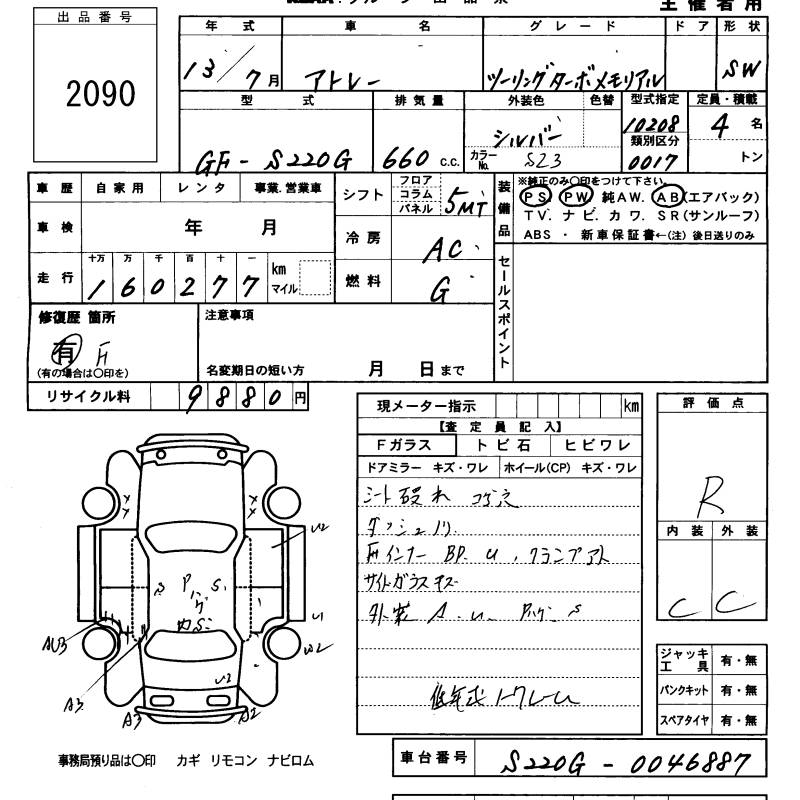 主催者用
出品番号
2090
年式 車名 グレード ドア 形状
13/7月 アトレー ツーリングターボメモリアル SW
型式 排気量 外装色 色替 型式指定 定員・積載
GF-S220G 660 c.c. シルバー 10208 4名
カラーNo. S23 類別区分 0017 トン
車歴 自家用 レンタ 事業.営業車
車検 年 月
走行 十万 万 千 百 十 一
160277 km マイル
シフト フロア コラム パネル 5MT
冷房 AC
燃料 G
装備品 ※純正のみ〇印をつけて下さい。
PS PW 純AW. AB(エアバック)
TV. ナビ. カワ. SR(サンルーフ)
ABS ・ 新車保証書←(注) 後日送りのみ
セールスポイント
修復歴 箇所
有
(有の場合は〇印を)
注意事項
名変期日の短い方 月 日まで
リサイクル料 9880円
現メーター指示 km
【査定員記入】
Fガラス トビ石 ヒビワレ
ドアミラー キズ・ワレ ホイール(CP) キズ・ワレ
シート破れ コゲ穴
ダッシュ
インナー BP. U. クランプアト
サイドガラスキズ
外装 A. U. S
低年式
評価点
R
内装 外装
C C
ジャッキ 工具 有・無
パンクキット 有・無
スペアタイヤ 有・無
U2
P S.
U1
AU3
W2
U2
A3
A3
A2
事務局預り品は〇印 カギ リモコン ナビロム
車台番号 S220G-0046887